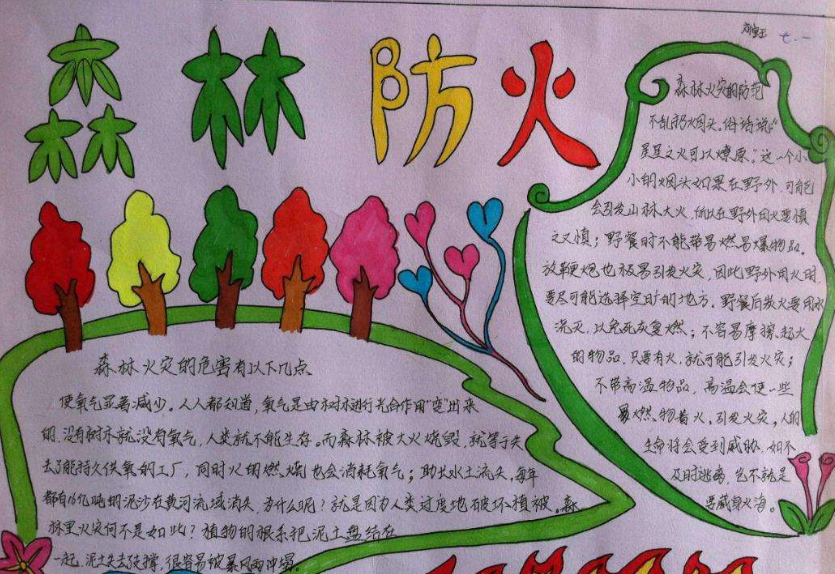 森林防火
七.一
森林火灾的防范
不乱扔烟头。俗话说"
星星之火可以燎原。"这一个小
小的烟头如果在野外,可能
会引发山林大火,所以在野外用火要慎
之又慎;野餐时不能带易燃易爆物品。
放鞭炮也极易引发火灾,因此野外用火时
要尽可能选择空旷的地方。野餐后熄火要用水
浇灭,以免死灰复燃;不容易摩擦起火
的物品,只要有火,就可能引发火灾;
不带高温物品,高温会使一些
易燃物着火。引发火灾。人的
生命将会受到威胁,如不
及时逃离,岂不就是
葬身火海。
森林火灾的危害有以下几点
使氧气显著减少。人人都知道,氧气是由树木进行光合作用"变"出来
的,没有树木就没有氧气,人类就不能生存。而森林被大火烧毁,就等于失
去了能持久供氧的工厂,同时火的燃烧也会消耗氧气;助长水土流失,每年
都有16亿吨的泥沙在黄河流域消失,为什么呢?就是因为人类过度地破坏植被。森
林里火灾何不是如此?植物的根系把泥土盘结在
一起,泥土失去支撑,很容易被暴风雨冲塌。